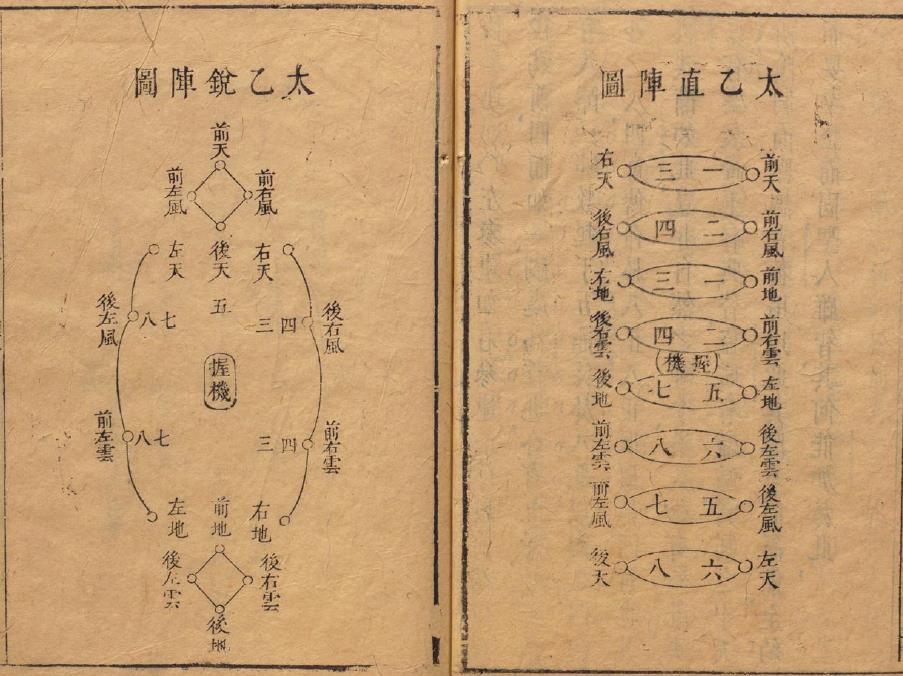 太乙直陣圖
前天 一 三 右天
前右風 二 四 後右風
前地 一 三 右地
前右雲 二 四 後右雲
握機
左地 五 七 後地
後左雲 六 八 前左雲
後左風 五 七 前左風
左天 六 八 後天
太乙銳陣圖
前天
前右風 前左風
右天 後天 左天
五
後右風 四 三 七 八 後左風
握機
前右雲 四 三 七 八 前左雲
右地 前地 左地
後右雲 後左雲
後地